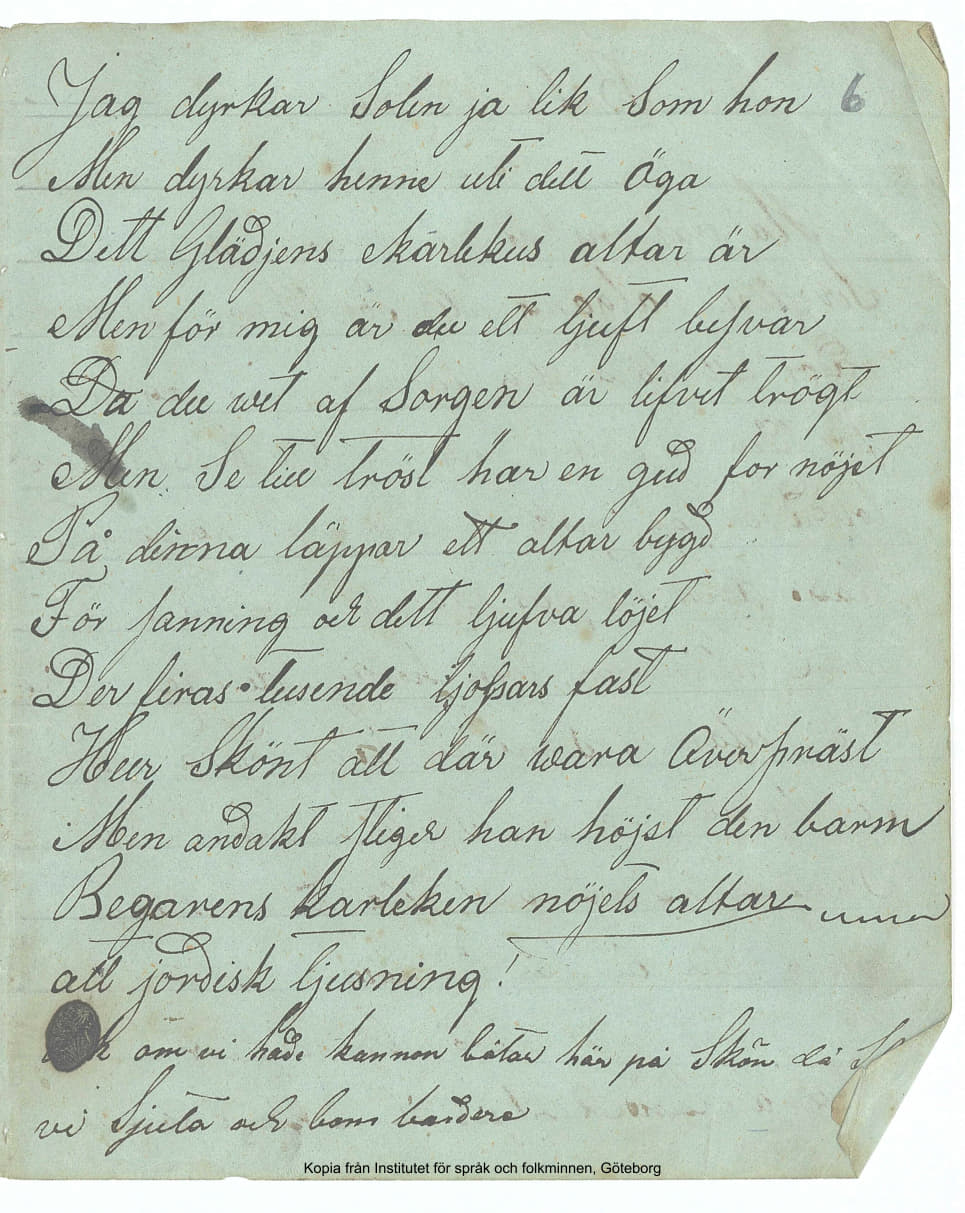 Jag dyrkar Solen ja lik Som hon 6
Men dyrkar henne uti dett Öga
Dett Glädjens Kärlekus altar är
Men för mig är du ett ljuft besvär
Da du wet af Sorgen är lifvet trögt
Men Se till tröst har en gud for nöjet
På dinna läppar ett altar bygd
För sanning och dett ljufva löjet
Der firas tusende fast
Hur Skönt att där wara Överpräst
Men andakt stiger han höjst den barm
Begarens karleken nöjets altar
all jordisk ljusning!
om vi hade kannon båtar här på Skön då
vi Sjuta och bom bardera
Kopia från Institutet för språk och folkminnen, Göteborg